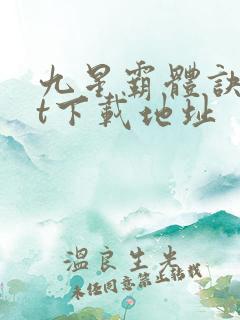 九星霸體訣
t下載地址
溫良生米
未经同意禁止转载